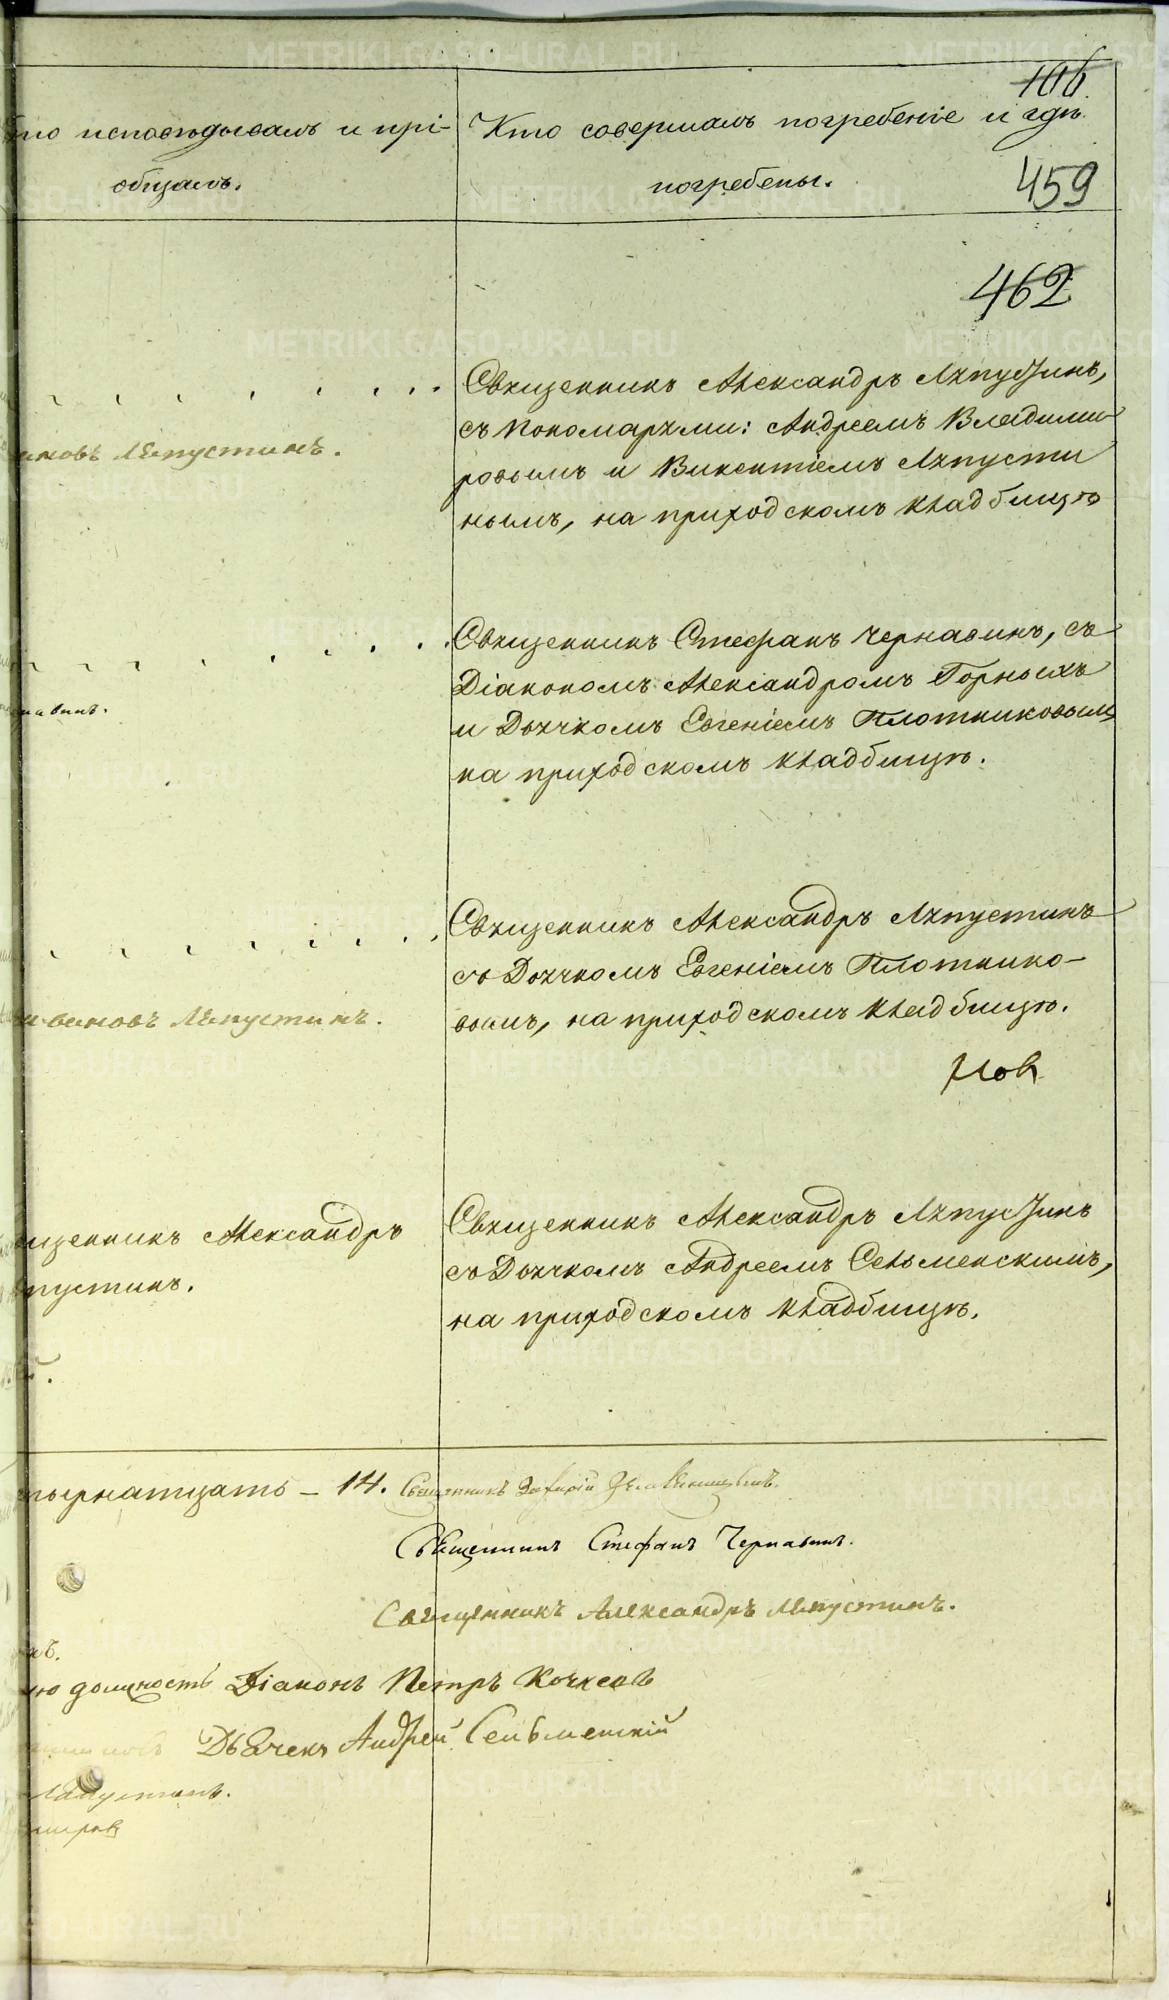 106.
Кто исповѣдывалъ и прі-
общалъ.
Кто совершалъ погребеніе и гдѣ
погребены.
459
462
Священникъ Александръ Ляпустинъ,
съ пономарями: Андреемъ Владими
ровымъ и Викентіемъ Ляпусти
нымъ, на приходскомъ кладбищѣ
Ляпустинъ.
Священникъ Стефанъ Чернавинъ, съ
Діакономъ Александромъ Горныхъ
и Дьячкомъ Евгеніемъ Плотниковымъ
на приходскомъ кладбищѣ.
навинъ.
Священникъ Александръ Ляпустинъ
съ Дьячкомъ Евгеніемъ Плотнико-
вымъ, на приходскомъ кладбищѣ.
Ивановъ Ляпустинъ.
щенникъ Александръ
пустинъ.
Священникъ Александръ Ляпустинъ
съ Дьячкомъ Андреемъ Сельменскимъ,
на приходскомъ кладбищѣ.
тырнатцать - 14. Священникъ
Священникъ Стефанъ Чернавинъ.
Священникъ Александръ Ляпустинъ.
ую должность Діаконъ Петръ
Дьячекъ Андрей Сельменскій
Ляпустинъ.
METRIKI.GASO-URAL.RU